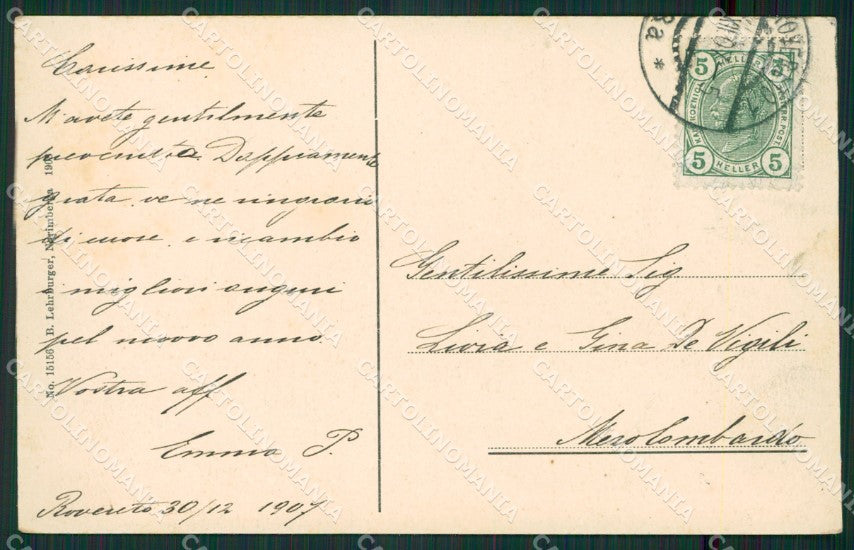 Carissime
M'avete gentilmente
prevenuta. Doppiamente
grata ve ne ringrazio
di cuore e ricambio
i migliori auguri
pel nuovo anno.
Vostra aff
Emma P.
Rovereto 30/12 1907
No. 15156 B. Lehrburger, Nürnberg
5 5
5 HELLER 5
Gentilissime Sig
Livia e Gina De Vigili
Mezolombardo
CARTOLINOMANIA